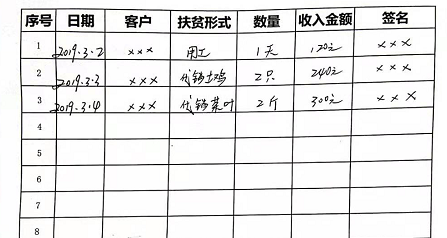 序号 日期 客户 扶贫形式 数量 收入金额 签名
1 2019.3.2 ××× 用工 1天 120元 ×××
2 2019.3.3 ××× 代销土鸡 2只 240元 ×××
3 2019.3.4 ××× 代销茶叶 2斤 300元 ×××
4
5
6
7
8